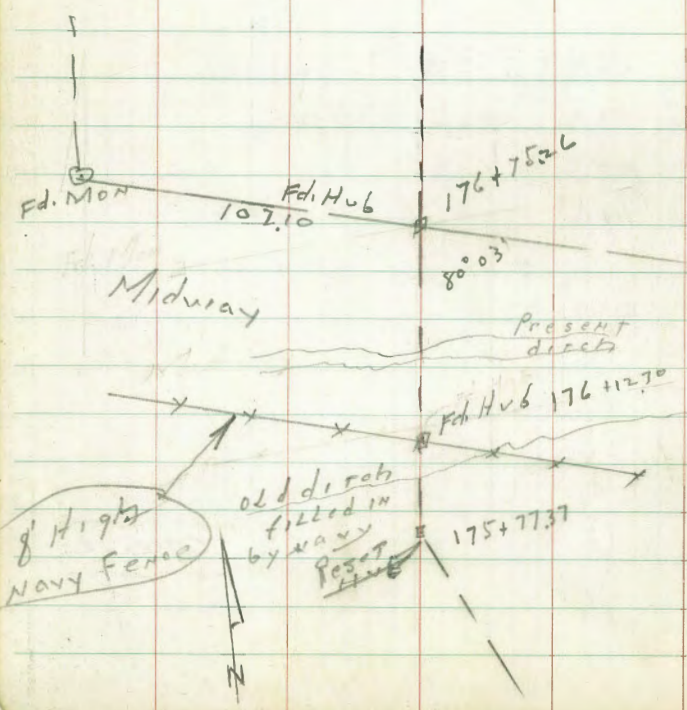 Fd. Mon
107.10
Fd. Hub
176 + 75.26
80° 03'
Midway
Present
ditch
Fd. Hub 176 + 12.70
8' High
Navy Fence
Old ditch
filled in
by Navy
Reset
Hub
175 + 77.37
N